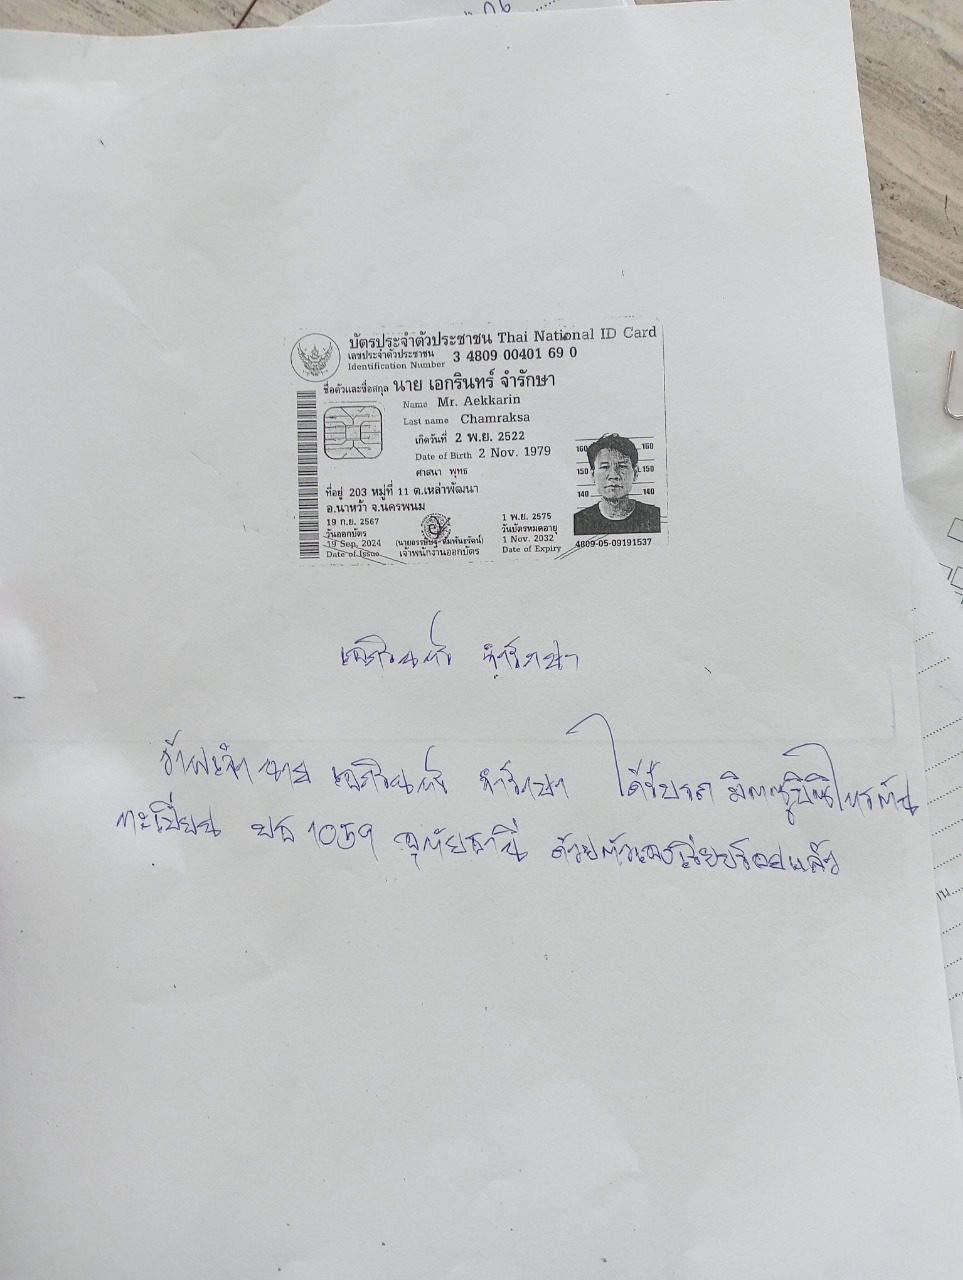 บัตรประจำตัวประชาชน Thai National ID Card
เลขประจำตัวประชาชน
Identification Number 3 4809 00401 69 0
ชื่อตัวและชื่อสกุล นาย เอกรินทร์ จำรักษา
Name Mr. Aekkarin
Last name Chamraksa
เกิดวันที่ 2 พ.ย. 2522
Date of Birth 2 Nov. 1979
ศาสนา พุทธ
ที่อยู่ 203 หมู่ที่ 11 ต.เหล่าพัฒนา
อ.นาหว้า จ.นครพนม
19 ก.ย. 2567
วันออกบัตร
19 Sep. 2024
Date of Issue
เจ้าพนักงานออกบัตร
1 พ.ย. 2575
วันบัตรหมดอายุ
1 Nov. 2032
Date of Expiry
160 160
150 150
140 140
4809-05-09191537
เอกรินทร์ จำรักษา
ข้าพเจ้า นาย เอกรินทร์ จำรักษา ได้รับรถ มิตซูบิชิไทรทัน
ทะเบียน บธ 1059 อุทัยธานี ด้วยตัวเองเรียบร้อยแล้ว